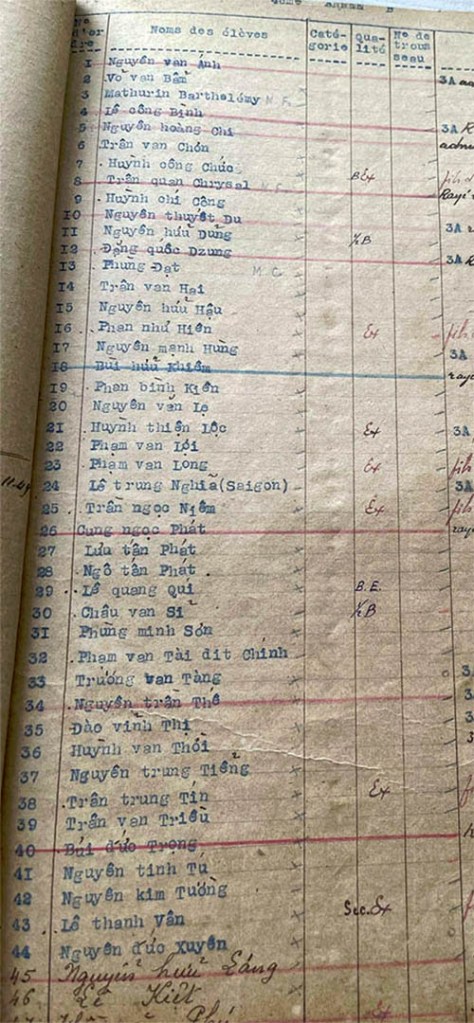 Nº d'ordre Noms des élèves Catégorie Qualité Nº de trousseau
1 Nguyễn van Ánh
2 Vo van Bẩm 3A
3 Mathurin Barthelémy M.F.
4 Lê công Bình
5 Nguyễn hoàng Chi 3A
6 Trần van Chón
7 Huỳnh công Chúc B Ex
8 Trần quan Chrysal
9 Huỳnh chi Công
10 Nguyễn thuyết Du 3A
11 Nguyễn hửu Dung ½B
12 Đặng quốc Dzung 3A
13 Phùng Đạt M.C.
14 Trần van Hai
15 Nguyễn hửu Hậu
16 Phan như Hiền Ex
17 Nguyễn mạnh Hùng 3A
18 Bui hửu Khiêm
19 Phan bình Kiên
20 Nguyễn văn Lạ
21 Huỳnh thiện Lộc Ex 3A
22 Phạm van Lợi
23 Phạm van Long Ex
24 Lê trung Nghia(Saigon) 3A
25 Trần ngọc Niệm Ex
26 Cung ngọc Phát
27 Lưu tấn Phát
28 Ngô tấn Phát
29 Lê quang Quí B.E.
30 Châu van Si ½B
31 Phùng minh Sơn
32 Phạm van Tài dit Chính
33 Trương van Tàng
34 Nguyễn trần Thê
35 Đào vinh Thị
36 Huỳnh van Thối
37 Nguyễn trung Tiếng
38 Trần trung Tín Ex
39 Trần van Triều
40 Bùi đức Trọng
41 Nguyễn tinh Tú
42 Nguyễn kim Tường
43 Lê thanh Vân Sec.Ex
44 Nguyễn đức Xuyên
45 Nguyễn hửu Sáng
46 Lê Kiệt